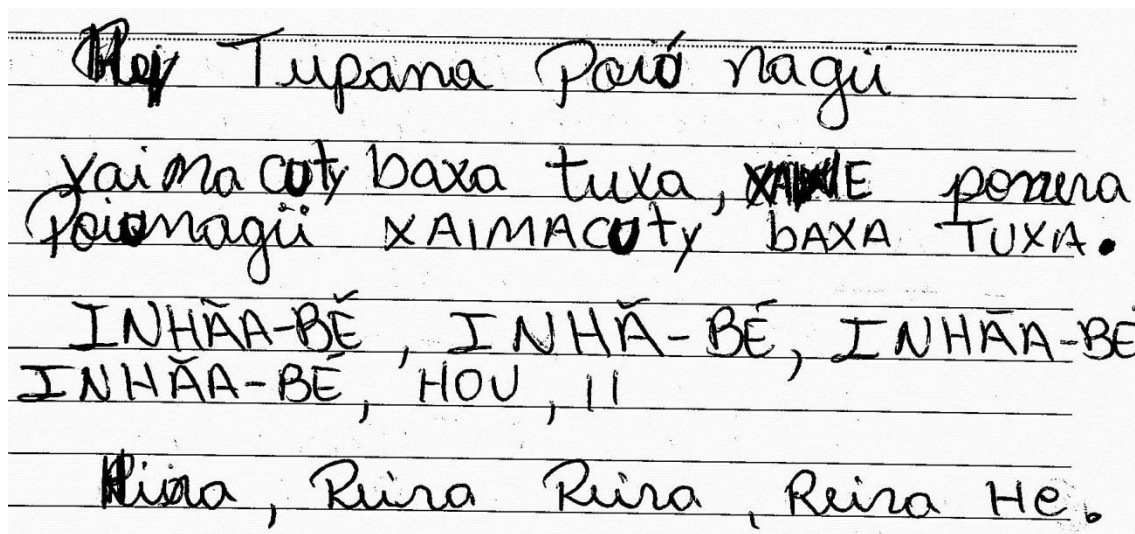 Hey Tupana Poió nagüi
xaima coty baxa tuxa, porrera
Poionagüi XAIMACOTY bAXA TUXA.
INHÃA-BÉ, INHÃ-BÉ, INHÃA-BÉ
INHÃA-BÉ, HOU, II
Ruira, Ruira, Reira He.